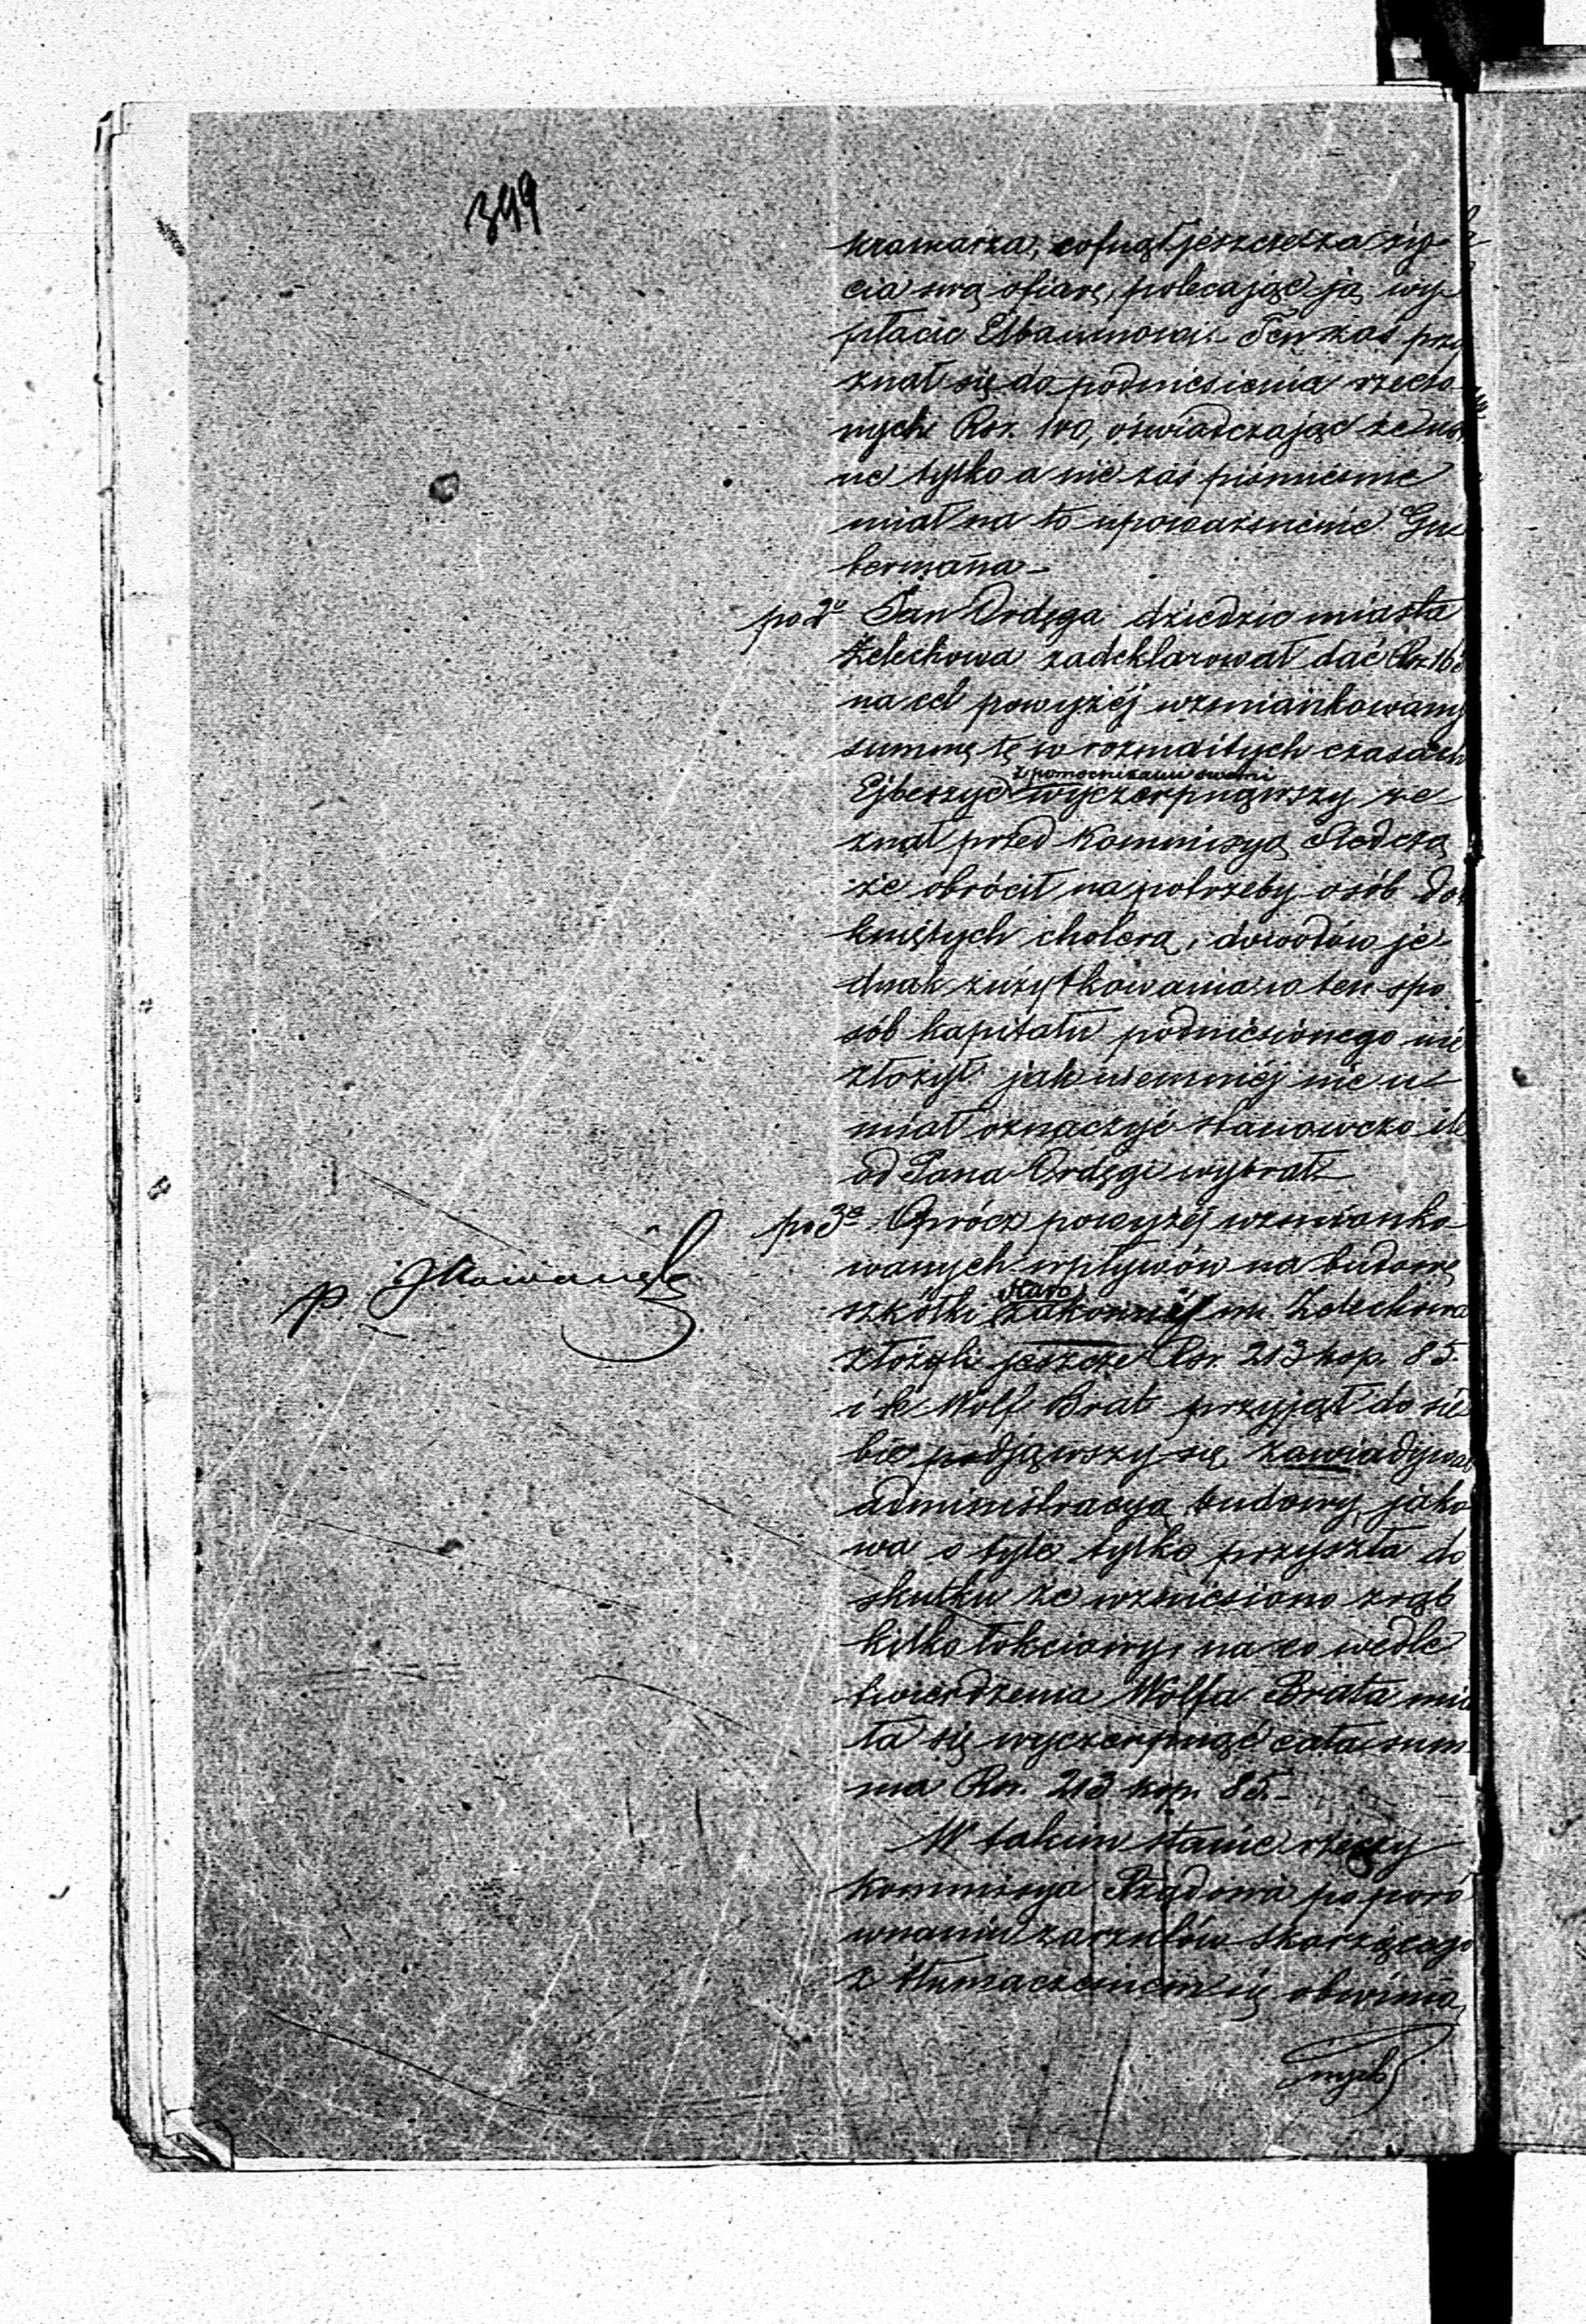 399
kramarza, cofnął jeszcze za ży-
cia swą ofiarę, polecając ją wy-
płacić Elbaumowi. Ten zaś przy
znał się do podniesienia rzeczo-
nych Rsr. 100, oświadczając że ust
ne tylko a nie zaś piśmienne
miał na to upoważnienie Gu
bermana.
po 2º Pan Ordęga dziedzic miasta
Żelechowa zadeklarował dać Rsr
na cel powyżéj wzmiankowany
summę tę w rozmaitych czasach
z pomocnikami swemi
Ejbeszyc wyczerpnąwszy ze-
znał przed Kommisyą Śledczą
że obrócił na potrzeby osób do
kniętych cholerą, dowodów je-
dnak zużytkowania w ten spo
sób kapitału podniesionego nie
złożył jak niemniéj nie u-
miał oznaczyć stanowczo ile
od Pana Ordęgi wybrał.
po 3e Oprócz powyżéj wzmianko-
wanych wpływów na budowę
staro
szkółki zakonnéj m. Żelechowa
złożyli jeszcze Rsr. 213 kop. 85.
i te Wolf Brat przyjął do sie
bie podjąwszy się zawiadywać
administracyą budowy, jako
wa o tyle tylko przyszła do
skutku że wzniesiono zrąb
kilkołokciowy, na co wedle
twierdzenia Wolfa Brata mia
ła się wyczerpnąć cała sum
ma Rsr. 213 kop. 85.-
W takim stanie rzeczy
Kommisya Rządowa po poró
wnaniu zarzutów skarżącego
z tłumaczeniem się obwinio
nych